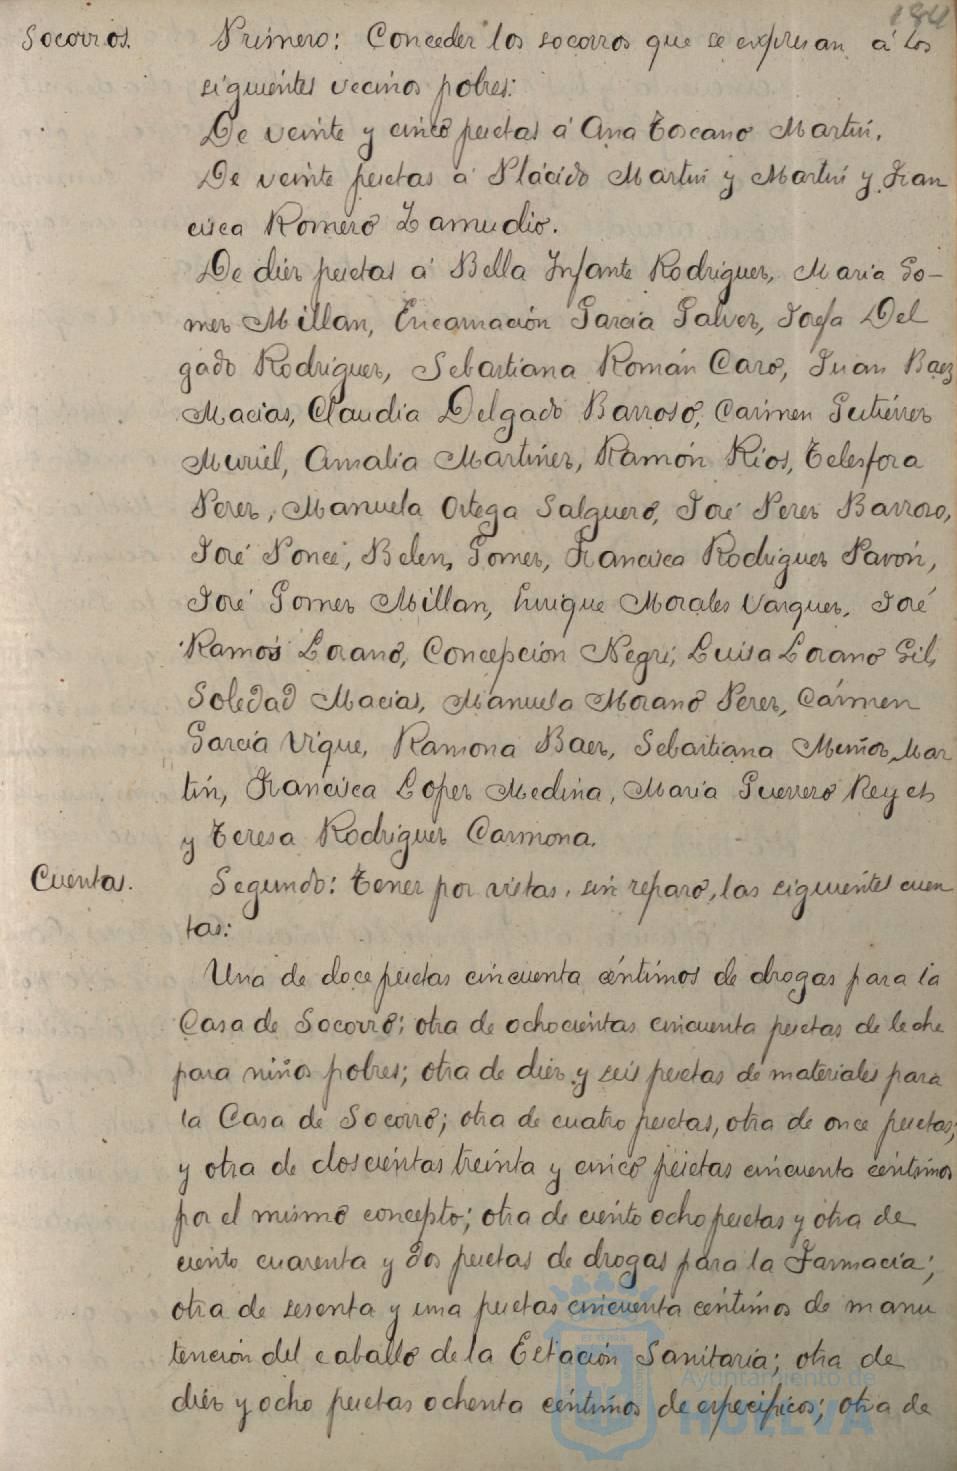 184
Socorros. Primero: Conceder los socorros que se expresan á los
siguientes vecinos pobres:
De veinte y cinco pesetas á Ana Toscano Martin.
De veinte pesetas á Plácido Martin y Martin y Fran
cisca Romero Zamudio.
De diez pesetas á Bella Infante Rodriguez, Maria Go-
mez Millan, Encarnación Garcia Galvez, Josefa Del
gado Rodriguez, Sebastiana Román Caro, Juan Baez
Macias, Claudia Delgado Barroso, Carmen Gutiérrez
Muriel, Amalia Martinez, Ramón Rios, Telesfora
Perez, Manuela Ortega Salguero, José Perez Barroso,
José Ponce, Belen Gomez, Francisca Rodriguez Pavón,
José Gomez Millan, Enrique Morales Vazquez, José
Ramos Lozano, Concepcion Negri, Luisa Lozano Gil,
Soledad Macias, Manuela Morano Perez, Cármen
Garcia Vique, Ramona Baez, Sebastiana Muñoz Mar
tin, Francisca Lopez Medina, Maria Guerrero Reyes
y Teresa Rodriguez Carmona.
Cuentas. Segundo: Tener por vistas, sin reparo, las siguientes cuen
tas:
Una de doce pesetas cincuenta céntimos de drogas para la
Casa de Socorro; otra de ochocientas cincuenta pesetas de leche
para niños pobres; otra de diez y seis pesetas de materiales para
la Casa de Socorro; otra de cuatro pesetas, otra de once pesetas;
y otra de doscientas treinta y cinco pesetas cincuenta céntimos
por el mismo concepto; otra de ciento ocho pesetas y otra de
ciento cuarenta y dos pesetas de drogas para la Farmacia;
otra de sesenta y una pesetas cincuenta céntimos de manu
tención del caballo de la Estación Sanitaria; otra de
diez y ocho pesetas ochenta céntimos de especificos; otra de
Ayuntamiento de
HUELVA